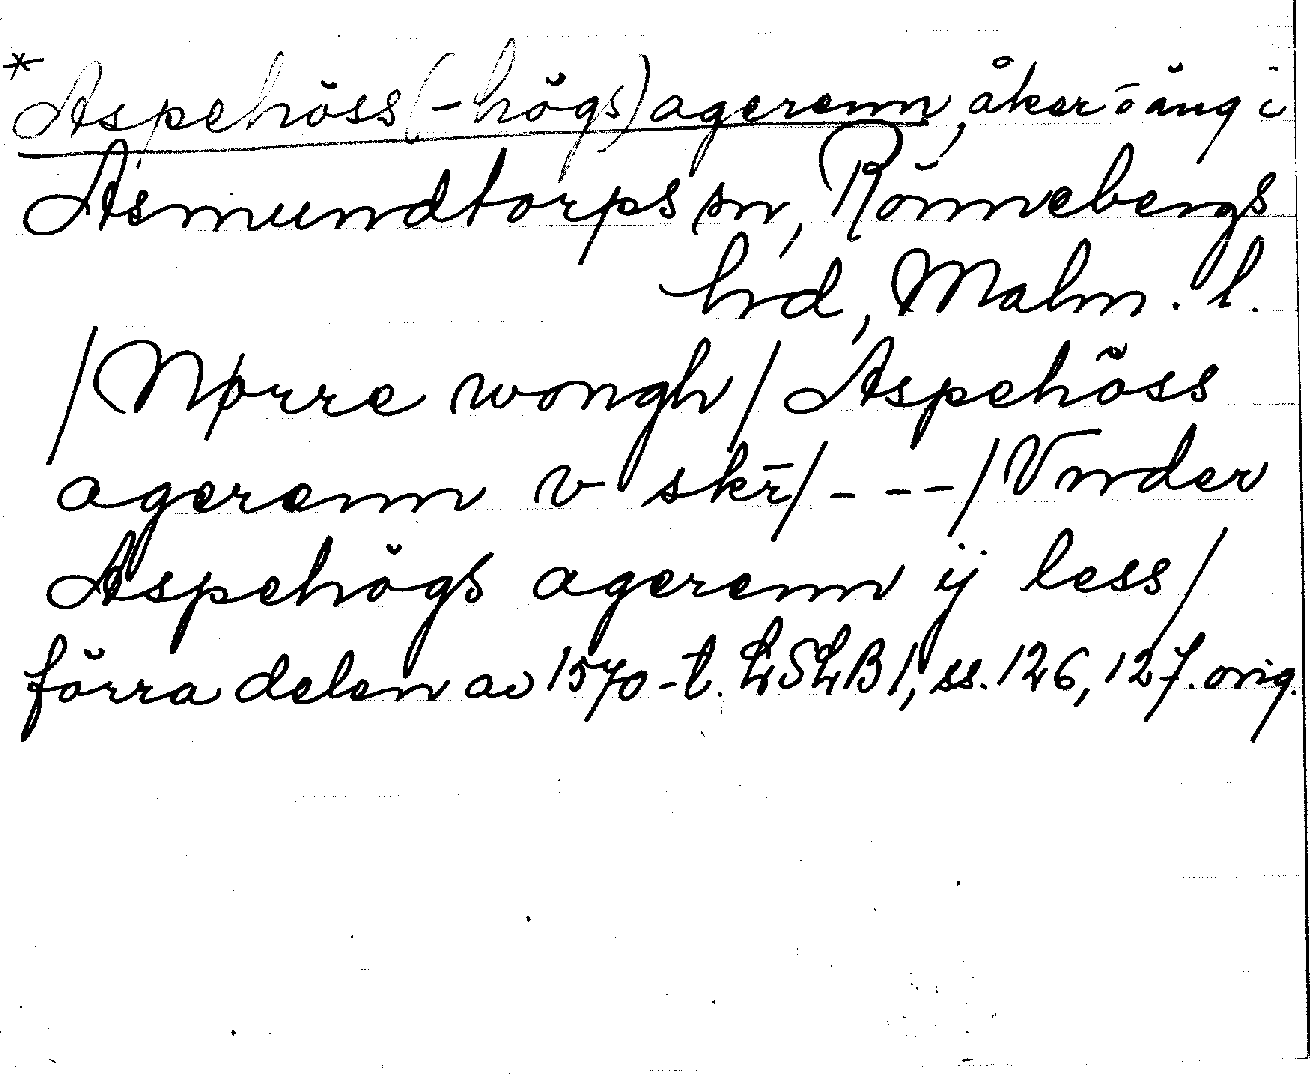 *Aspehöss(-högs)agerenn, åker o äng i
Asmundtorps sn, Rönnebergs
hrd, Malm. l.
/Nørre wongh/ Aspehöss
agerenn v skr̄/ - - - /Vnder
Aspehögs agerenn ij less/
förra delen av 1570-t. LSLB 1, ss. 126, 127. orig.